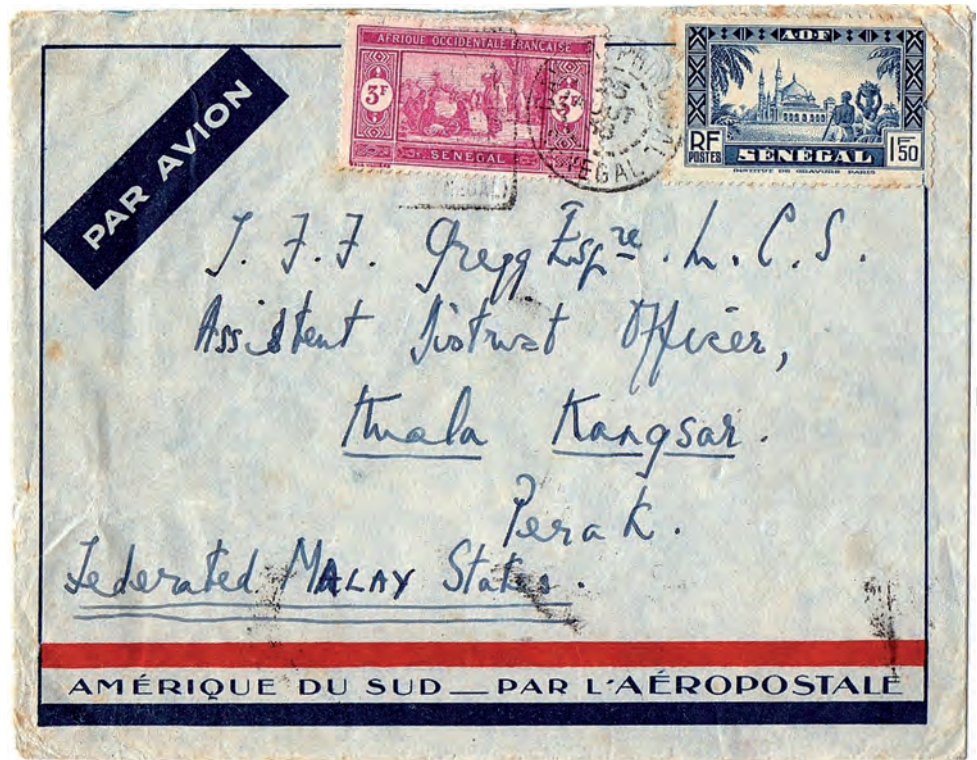 AFRIQUE OCCIDENTALE FRANÇAISE
3F 3F
SENEGAL
A.O.F
RF
POSTES
SÉNÉGAL
1F50
INSTITUT DE GRAVURE PARIS
PAR AVION
J. F. F. Gregg Esqre. M. C. S.
Assistent District Officer,
Kuala Kangsar.
Perak.
Federated MALAY States.
AMÉRIQUE DU SUD — PAR L'AÉROPOSTALE